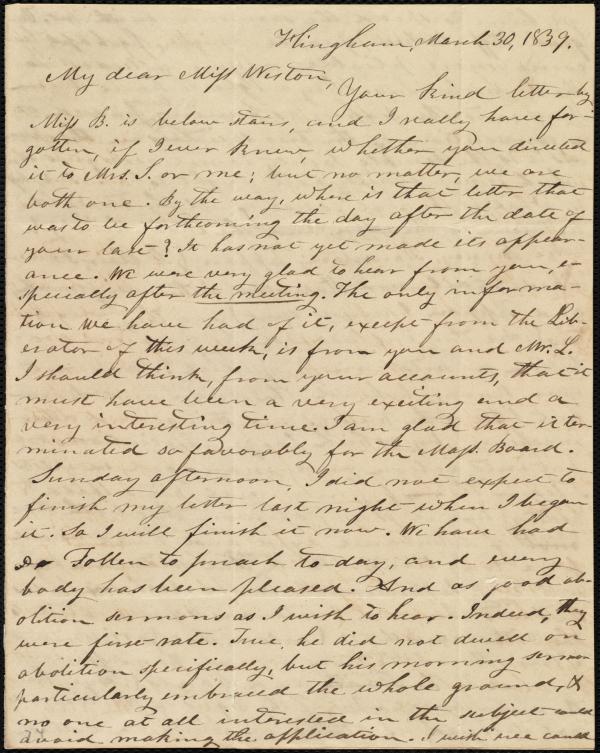 Hingham, March 30, 1839.
My dear Miss Weston,
Your kind letter by
Miss B. is below stairs, and I really have for-
gotten, if I ever knew, whether you directed
it to Mrs. S. or me; but no matter, we are
both one. By the way, where is that letter that
was to be forthcoming the day after the date of
your last? It has not yet made its appear-
ance. We were very glad to hear from you, e-
specially after the meeting. The only informa-
tion we have had of it, except from the Lib-
erator of this week, is from you and Mr. L.
I should think, from your accounts, that it
must have been a very exciting and a
very interesting time. I am glad that it ter-
minated so favorably for the Mass. Board.
Sunday afternoon, I did not expect to
finish my letter last night when I began
it. So I will finish it now. We have had
Dr Follen to preach to-day, and every
body has been pleased. And as good ab-
olition sermons as I wish to hear. Indeed, they
were first-rate. True, he did not dwell on
abolition specifically, but his morning sermon
particularly embraced the whole ground, &
no one at all interested in the subject could
avoid making the application. I wish we could